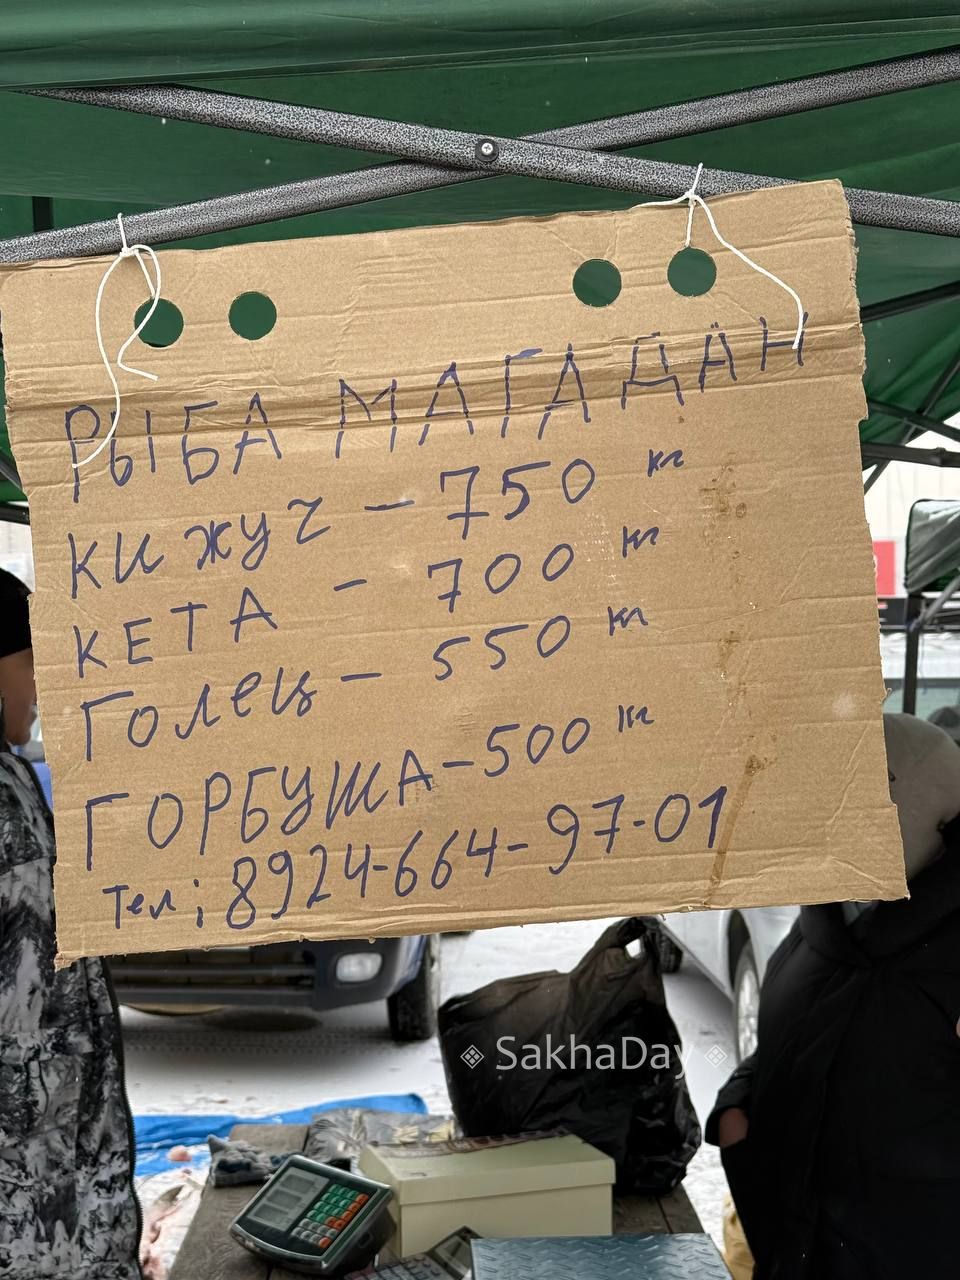 РЫБА МАГАДАН
КИЖУЧ - 750 кг
КЕТА - 700 кг
ГОЛЕЦ - 550 кг
ГОРБУША - 500 кг
Тел: 8924-664-97-01
SakhaDay